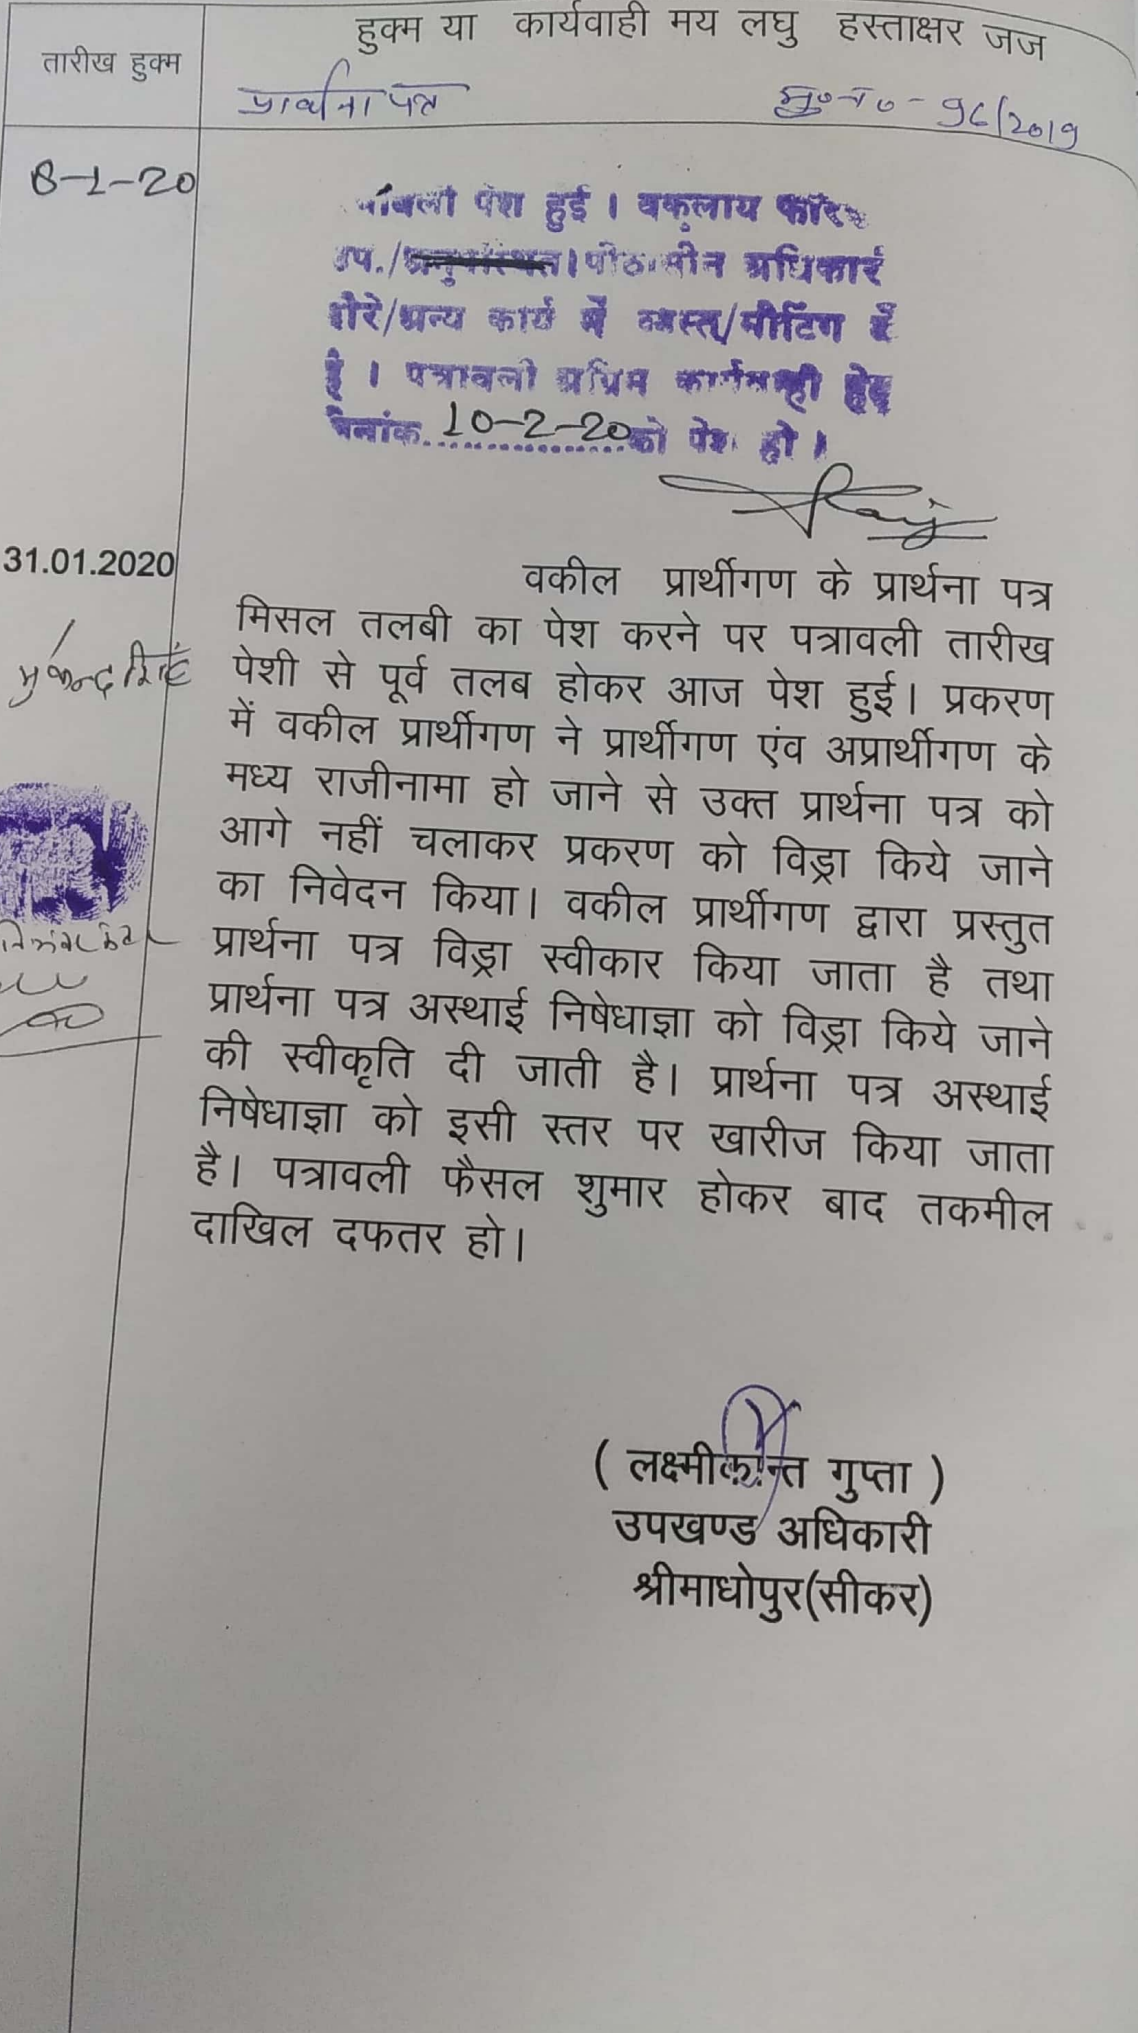 हुक्म या कार्यवाही मय लघु हस्ताक्षर जज
तारीख हुक्म
प्रार्थना पत्र मु०न०-96/2019
8-1-20
पेश हुई । वकलाय
उप./अनुपस्थित। पीठासीन
अन्य कार्य में व्यस्त/मीटिंग में
है । पत्रावली अग्रिम कार्यवाही हेतु
10-2-20 को पेश हो ।
31.01.2020
वकील प्रार्थीगण के प्रार्थना पत्र
मिसल तलबी का पेश करने पर पत्रावली तारीख
मुकन्द सिंह
पेशी से पूर्व तलब होकर आज पेश हुई। प्रकरण
में वकील प्रार्थीगण ने प्रार्थीगण एंव अप्रार्थीगण के
मध्य राजीनामा हो जाने से उक्त प्रार्थना पत्र को
आगे नहीं चलाकर प्रकरण को विड्रा किये जाने
का निवेदन किया। वकील प्रार्थीगण द्वारा प्रस्तुत
प्रार्थना पत्र विड्रा स्वीकार किया जाता है तथा
प्रार्थना पत्र अस्थाई निषेधाज्ञा को विड्रा किये जाने
की स्वीकृति दी जाती है। प्रार्थना पत्र अस्थाई
निषेधाज्ञा को इसी स्तर पर खारीज किया जाता
है। पत्रावली फैसल शुमार होकर बाद तकमील
दाखिल दफतर हो।
( लक्ष्मीकान्त गुप्ता )
उपखण्ड अधिकारी
श्रीमाधोपुर(सीकर)